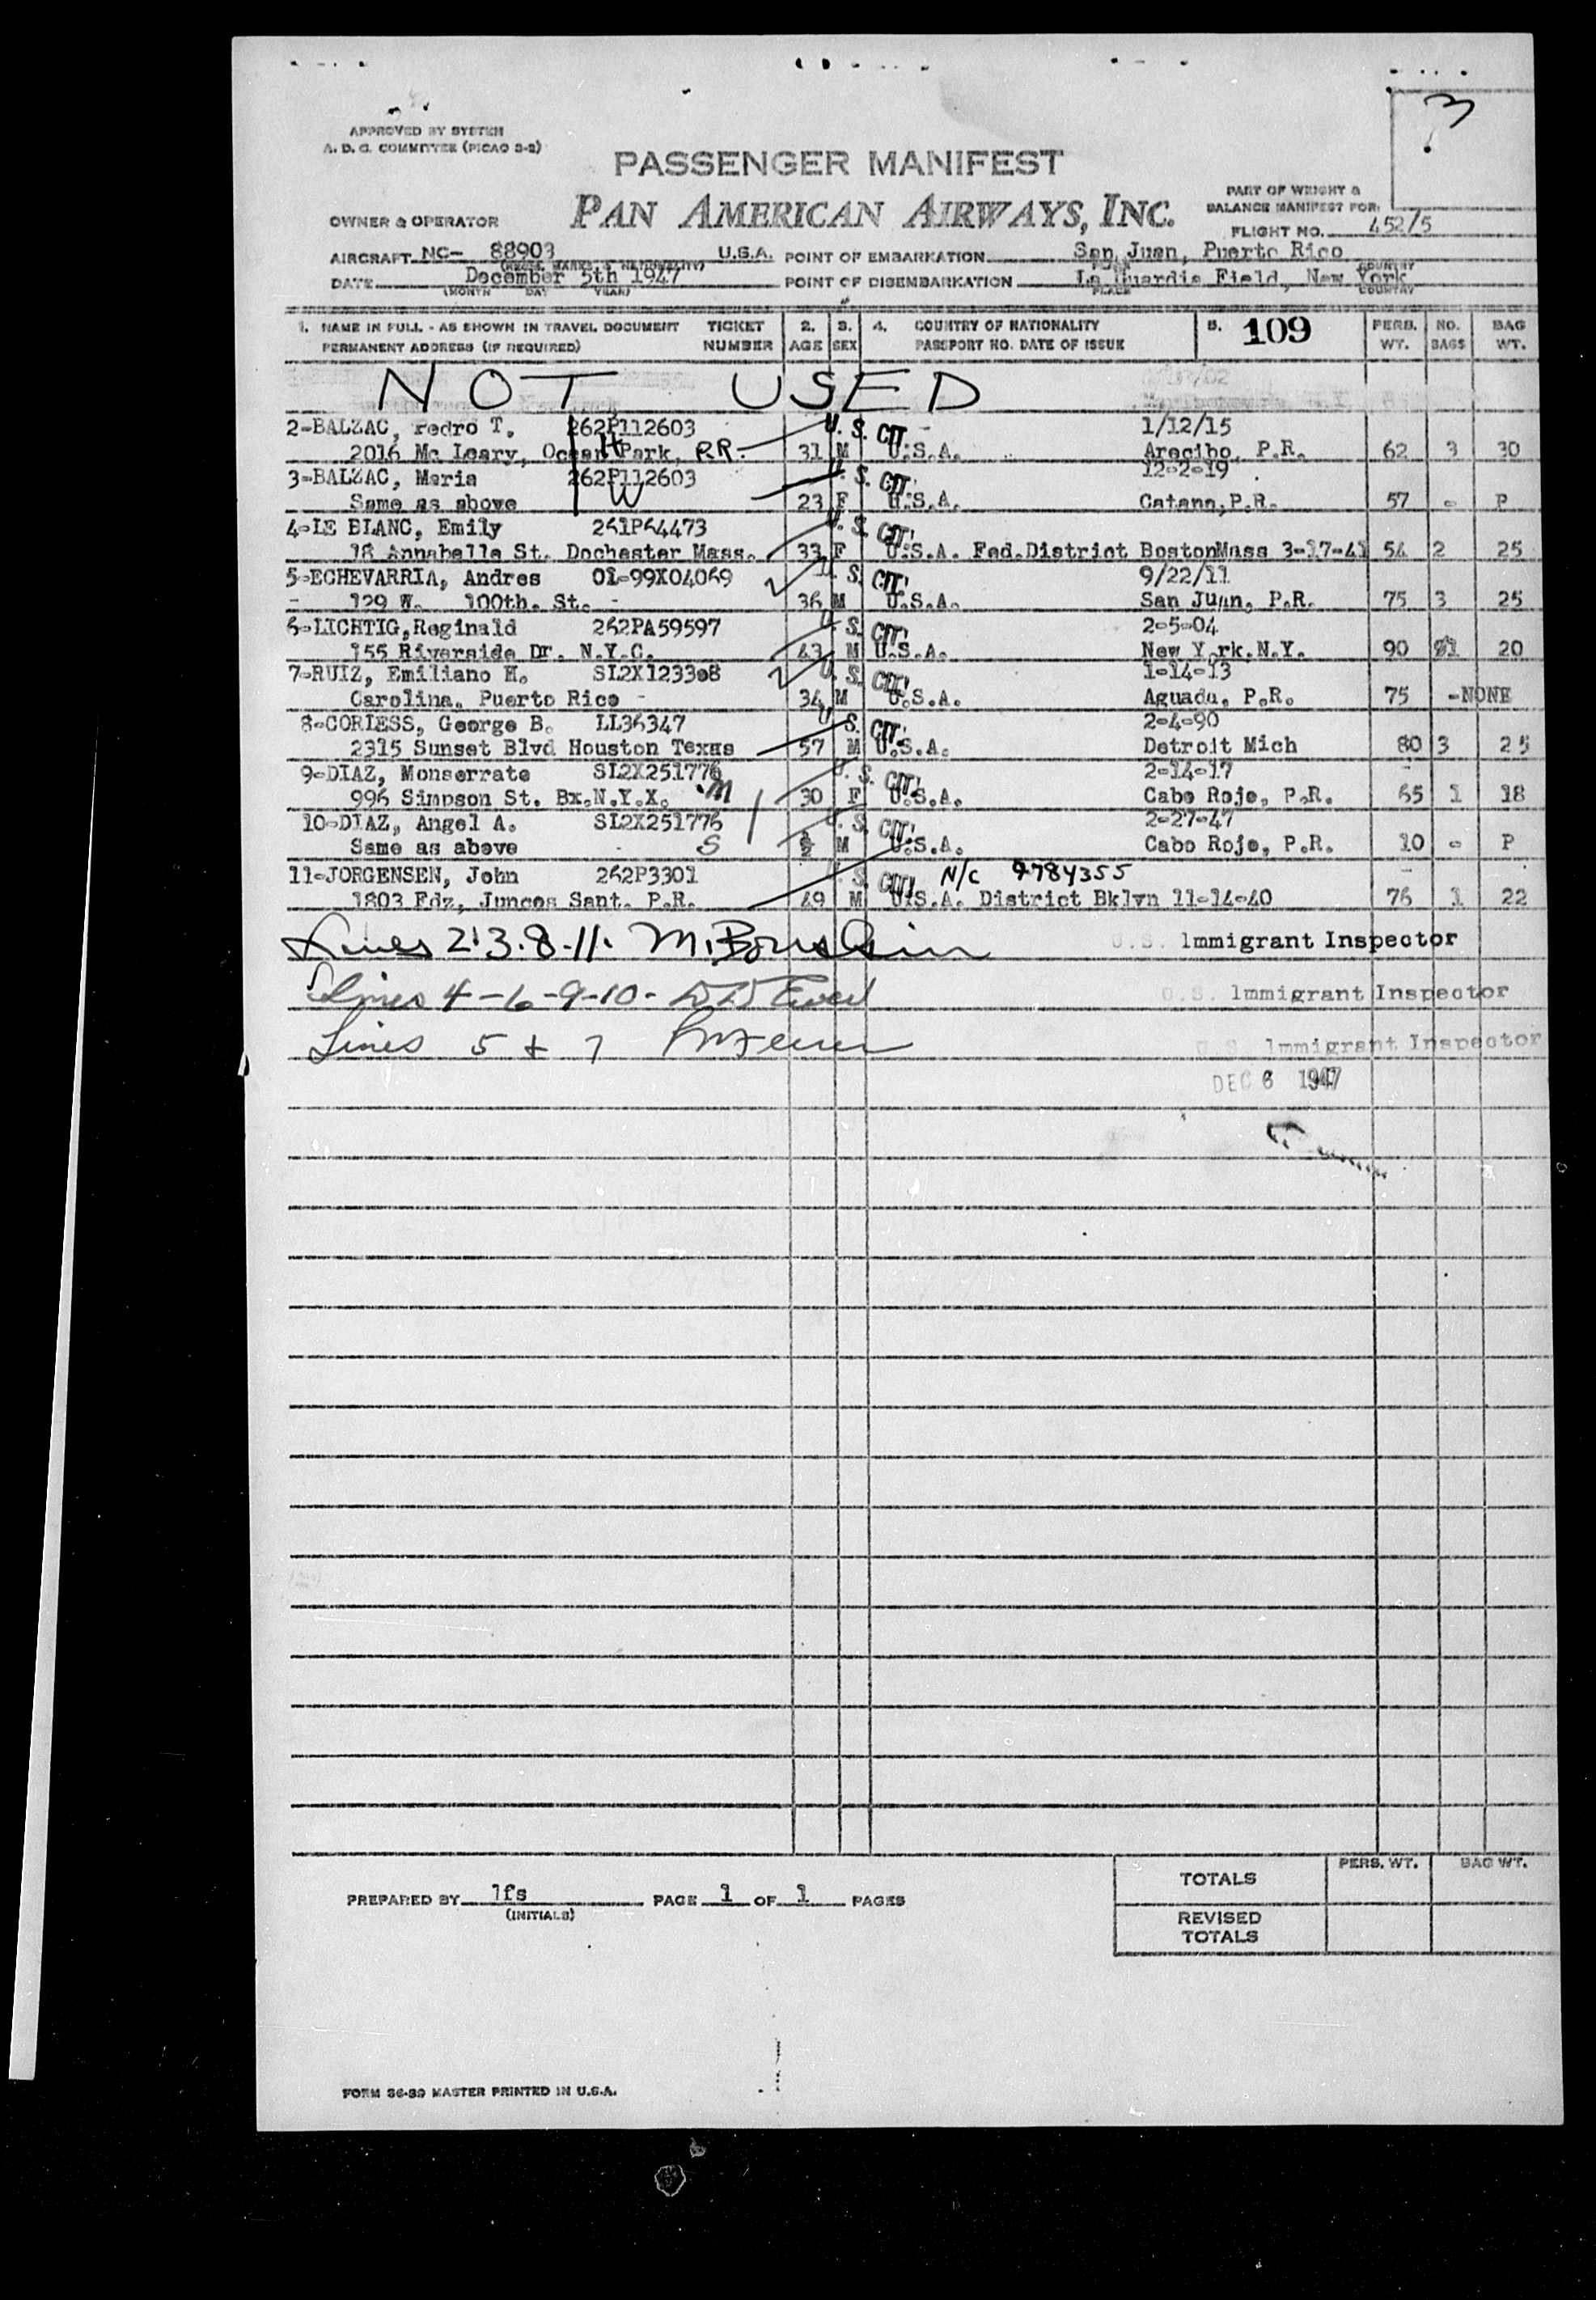 3
APPROVED BY SYSTEM
A. D. C. COMMITTEE (PICAO 3-2)
PASSENGER MANIFEST
PART OF WEIGHT &
BALANCE MANIFEST FOR:
OWNER & OPERATOR PAN AMERICAN AIRWAYS, INC.
FLIGHT NO. 452/5
AIRCRAFT NC- 88903 U.S.A. POINT OF EMBARKATION San Juan, Puerto Rico
DATE December 5th 1947 POINT OF DISEMBARKATION La Guardia Field, New York
(MONTH DAY YEAR) PLACE COUNTRY
1. NAME IN FULL - AS SHOWN IN TRAVEL DOCUMENT TICKET 2. 3. 4. COUNTRY OF NATIONALITY 5. 109 PERS. NO. BAG
PERMANENT ADDRESS (IF REQUIRED) NUMBER AGE SEX PASSPORT NO. DATE OF ISSUE WT. BAGS WT.
NOT USED
2-BALZAC, Pedro T. 262P112603 U. S. CIT. 1/12/15
2016 Mc Leary, Ocean Park, P.R. H 31 M U.S.A. Arecibo, P.R. 62 3 30
3-BALZAC, Maria 262P112603 U. S. CIT. 12-2-19
Same as above W 23 F U.S.A. Catano, P.R. 57 - P
4-LE BLANC, Emily 261P64473 U. S. CIT.
18 Annabella St. Dochester Mass. 33 F U.S.A. Fed.District BostonMass 3-17-41 54 2 25
5-ECHEVARRIA, Andres 01-99X04069 U. S. CIT. 9/22/11
- 129 W. 100th. St. - 36 M U.S.A. San Juan, P.R. 75 3 25
6-LICHTIG, Reginald 262PA59597 U. S. CIT. 2-5-04
155 Riverside Dr. N.Y.C. 43 M U.S.A. New York, N.Y. 90 1 20
7-RUIZ, Emiliano H. SL2X123308 U. S. CIT. 1-14-13
Carolina, Puerto Rico - 34 M U.S.A. Aguada, P.R. 75 -NONE
8-CORLESS, George B. LL36347 U. S. CIT. 2-4-90
2315 Sunset Blvd Houston Texas 57 M U.S.A. Detroit Mich 80 3 25
9-DIAZ, Monserrate SL2X251776 U. S. CIT. 2-14-17
996 Simpson St. Bx.N.Y.X. M 30 F U.S.A. Cabo Rojo, P.R. 65 1 18
10-DIAZ, Angel A. SL2X251776 U. S. CIT. 2-27-47
Same as above S ½ M U.S.A. Cabo Rojo, P.R. 10 - P
11-JORGENSEN, John 262P3301 U. S. CIT. N/C 9784355
1803 Fdz, Juncos Sant. P.R. 49 M U.S.A. District Bklyn 11-14-40 76 1 22
Lines 2-3-8-11. U.S. Immigrant Inspector
Lines 4-6-9-10- U.S. Immigrant Inspector
Lines 5 + 7 U.S. Immigrant Inspector
DEC 6 1947
PERS. WT. BAG WT.
TOTALS
PREPARED BY lfs PAGE 1 OF 1 PAGES
(INITIALS)
REVISED
TOTALS
FORM 36-89 MASTER PRINTED IN U.S.A.